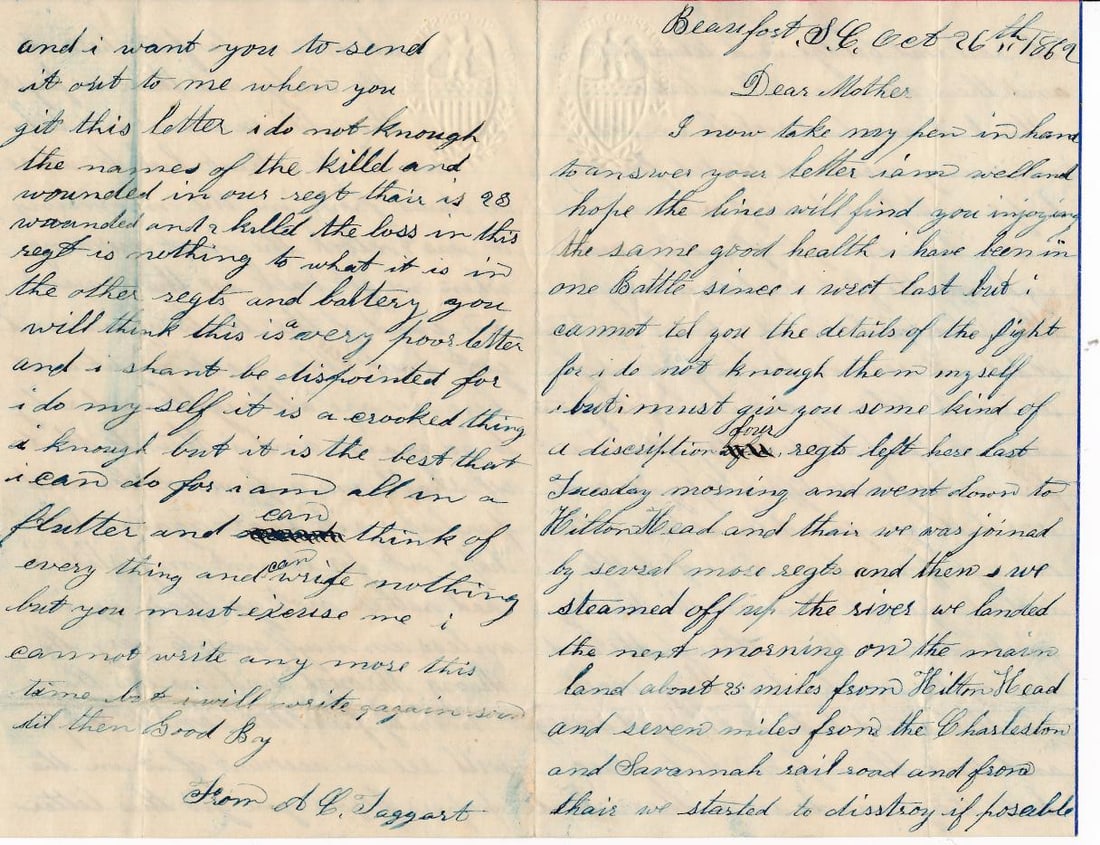 Beaufort, S.C. Oct 26th 1862
Dear Mother
I now take my pen in hand
to answer your letter i am well and
hope the lines will find you injoying
the same good health i have been in
one Battle since i wrot last but i
cannot tel you the details of the fight
for i do not knough them myself
but i must giv you some kind of
a discription four regts left here last
Tuesday morning and went down to
Hilton Head and thair we was joined
by sevral more regts and then we
steamed off up the river we landed
the next morning on the main
land about 25 miles from Hilton Head
and seven miles from the Charleston
and Savannah rail road and from
thair we started to disstroy if posable
and i want you to send
it out to me when you
git this letter i do not knough
the names of the killd and
wounded in our regt thair is 28
wounded and 2 killd the loss in this
regt is nothing to what it is in
the other regts and battery you
will think this is a very poor letter
and i shant be dispointed for
i do my self it is a crooked thing
i knough but it is the best that
i can do for i am all in a
flutter and can think of
every thing and can write nothing
but you must excuse me i
cannot write any more this
time but i will write gagain soon
til then Good By
From A C. Taggart